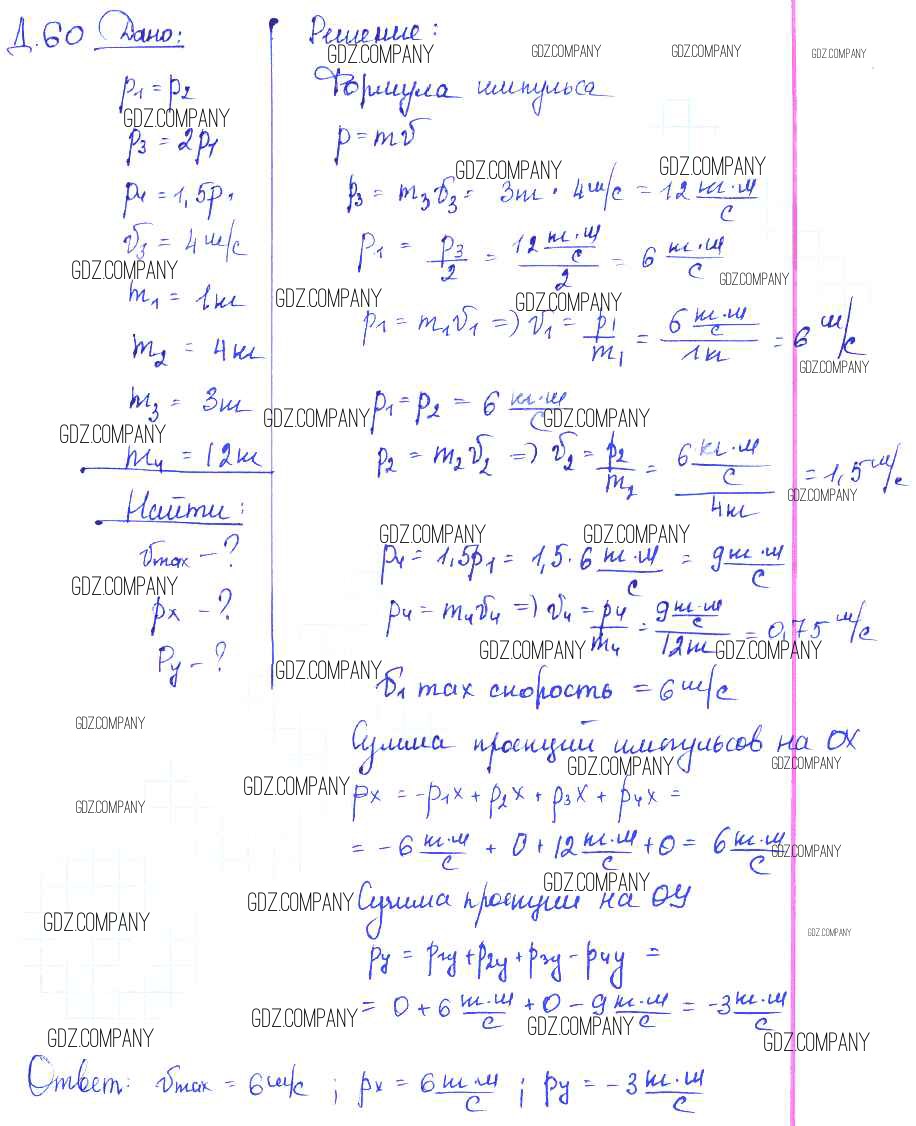 Д.60 Дано:
p₁ = p₂
p₃ = 2p₁
p₄ = 1,5p₁
v₃ = 4 м/с
m₁ = 1кг
m₂ = 4кг
m₃ = 3кг
m₄ = 12кг
Найти:
vmax – ?
px – ?
Py – ?
Решение:
Формула импульса
p = mv
p₃ = m₃v₃ = 3кг · 4 м/с = 12 кг·м/с
p₁ = p₃/2 = (12 кг·м/с)/2 = 6 кг·м/с
p₁ = m₁v₁ => v₁ = p₁/m₁ = (6 кг·м/с)/1кг = 6 м/с
p₁ = p₂ = 6 кг·м/с
p₂ = m₂v₂ => v₂ = p₂/m₂ = (6 кг·м/с)/4кг = 1,5 м/с
p₄ = 1,5p₁ = 1,5 · 6 кг·м/с = 9 кг·м/с
p₄ = m₄v₄ => v₄ = p₄/m₄ = (9 кг·м/с)/12кг = 0,75 м/с
v₁ max скорость = 6 м/с
Сумма проекций импульсов на ОХ
px = -p₁x + p₂x + p₃x + p₄x =
= - 6 кг·м/с + 0 + 12 кг·м/с + 0 = 6 кг·м/с
Сумма проекций на ОУ
py = p₁y + p₂y + p₃y - p₄y =
= 0 + 6 кг·м/с + 0 - 9 кг·м/с = -3 кг·м/с
Ответ: vmax = 6 м/с ; px = 6 кг·м/с ; py = -3 кг·м/с
GDZ.COMPANY